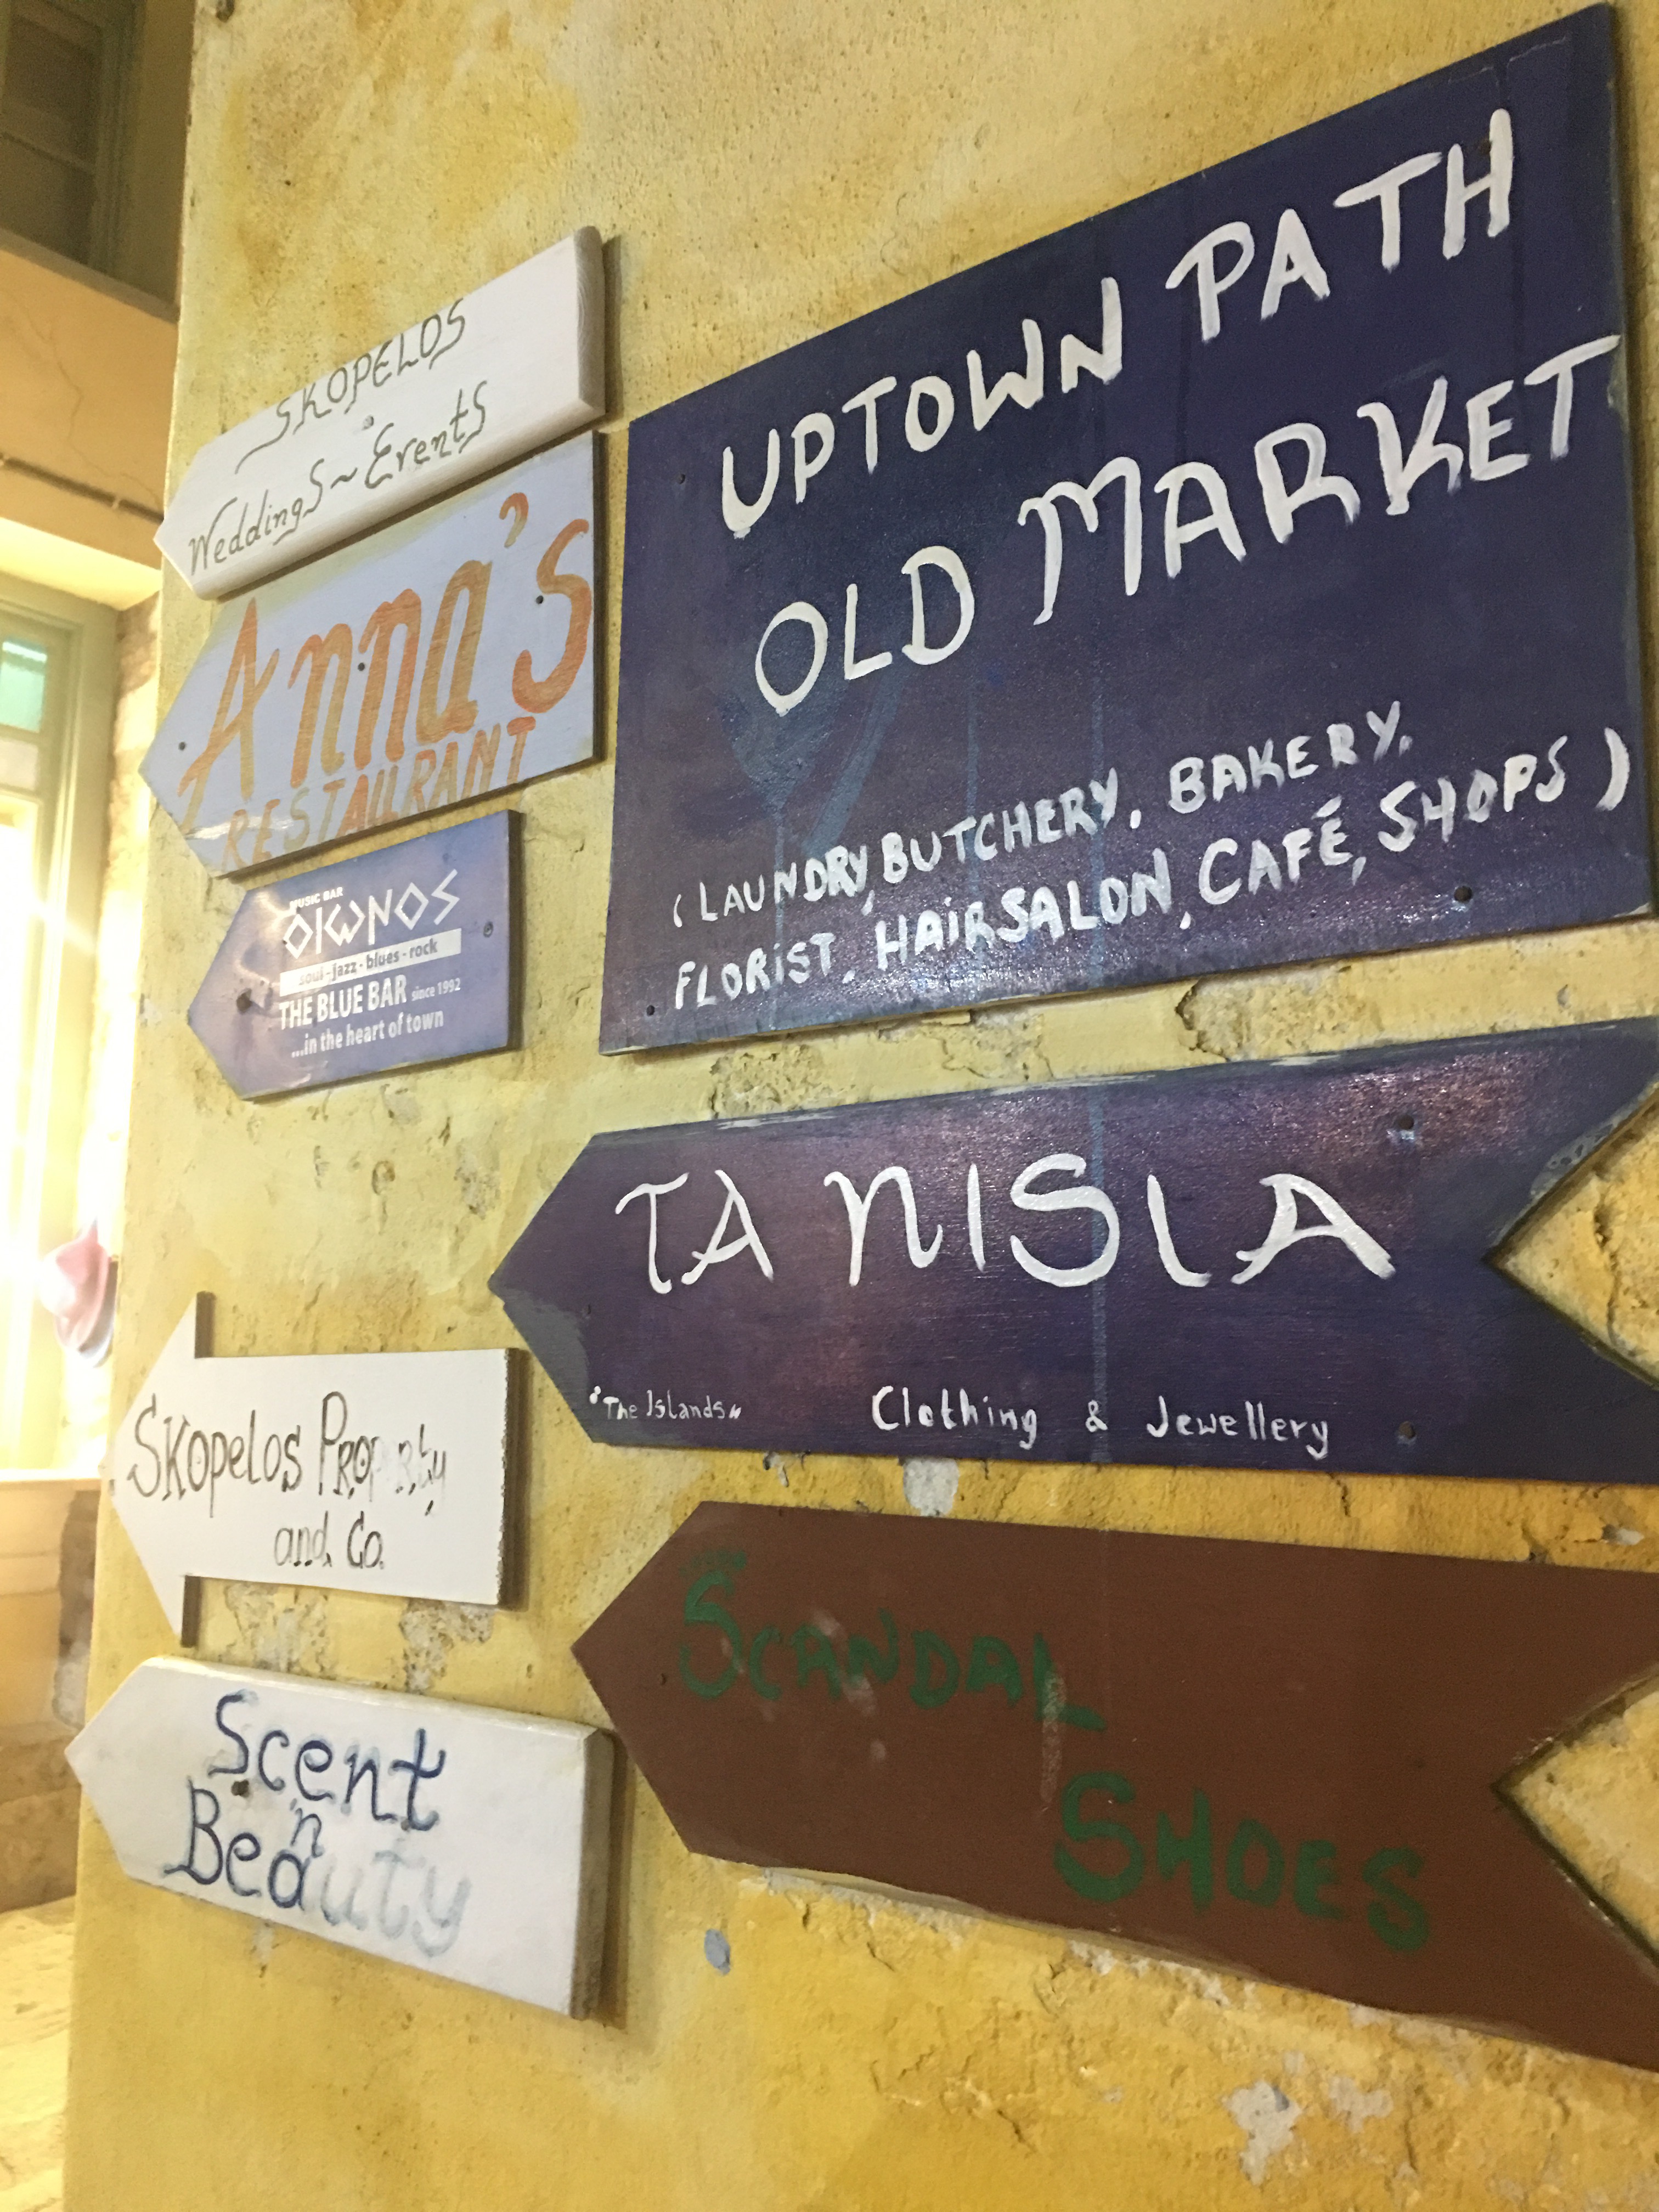 SKOPELOS
Weddings ~ Events
Anna's
RESTAURANT
MUSIC BAR
OIWNOS
soul - jazz - blues - rock
THE BLUE BAR since 1992
...in the heart of town
Skopelos Property
and Co.
Scent
'n
Beauty
UPTOWN PATH
OLD MARKET
(LAUNDRY, BUTCHERY, BAKERY,
FLORIST, HAIRSALON, CAFÉ, SHOPS)
TA NISIA
"The Islands" Clothing & Jewellery
SCANDAL
SHOES